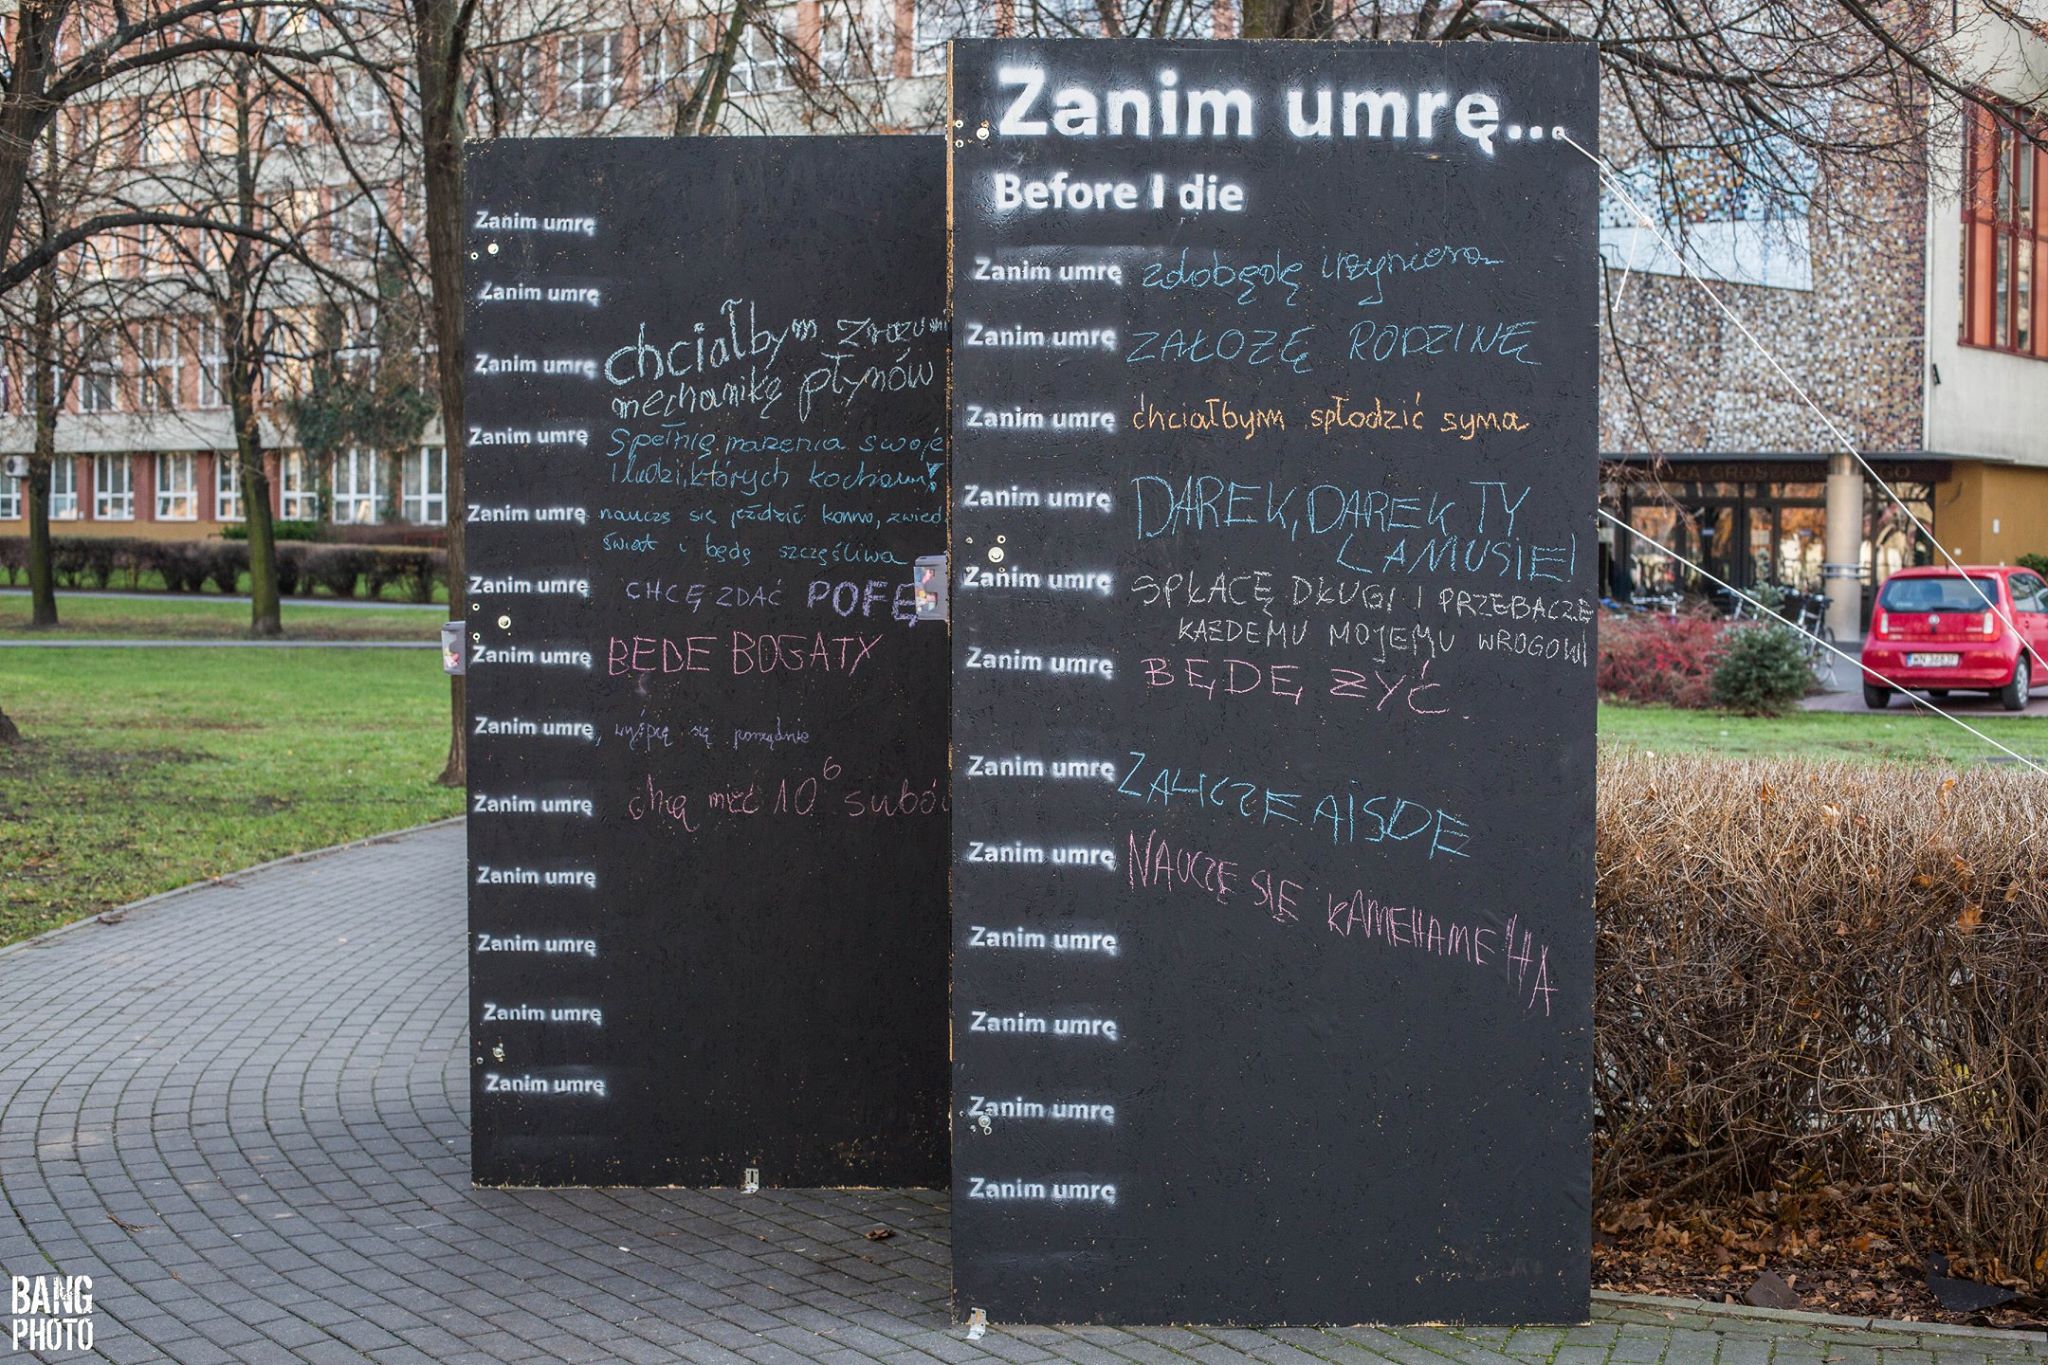 Zanim umrę
Zanim umrę
Zanim umrę chciałbym zrozumi
mechanikę płynów
Zanim umrę Spełnię marzenia swoje
i ludzi, których kocham!
Zanim umrę nauczę się jeździć konno, zwied
świat i będę szczęśliwa
Zanim umrę CHCĘ ZDAĆ POFĘ
Zanim umrę BĘDE BOGATY
Zanim umrę, wyśpię się porządnie
Zanim umrę chcę mieć 10⁶ subó
Zanim umrę
Zanim umrę
Zanim umrę
Zanim umrę
Zanim umrę...
Before I die
Zanim umrę zdobędę inżyniera
Zanim umrę ZAŁOŻĘ RODZINĘ
Zanim umrę chciałbym spłodzić syna
Zanim umrę DAREK, DAREK TY
LAMUSIE!
Zanim umrę SPŁACĘ DŁUGI I PRZEBACZĘ
KAŻDEMU MOJEMU WROGOWI
Zanim umrę BĘDĘ ŻYĆ
Zanim umrę ZALICZE AISDE
Zanim umrę NAUCZĘ SIĘ KAMEHAMEHA
Zanim umrę
Zanim umrę
Zanim umrę
Zanim umrę
BANG
PHOTO